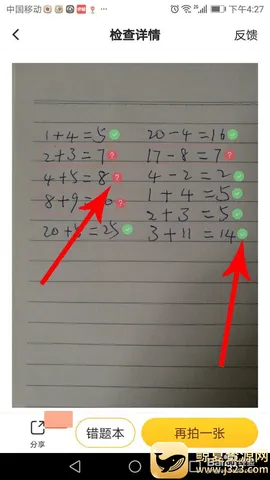 中国移动 下午4:27
检查详情 反馈
1+4=5 20-4=16
2+3=7 17-8=7
4+5=8 4-2=2
8+9= 1+4=5
20+5=25 2+3=5
3+11=14
分享 错题本 再拍一张
www.j323.com